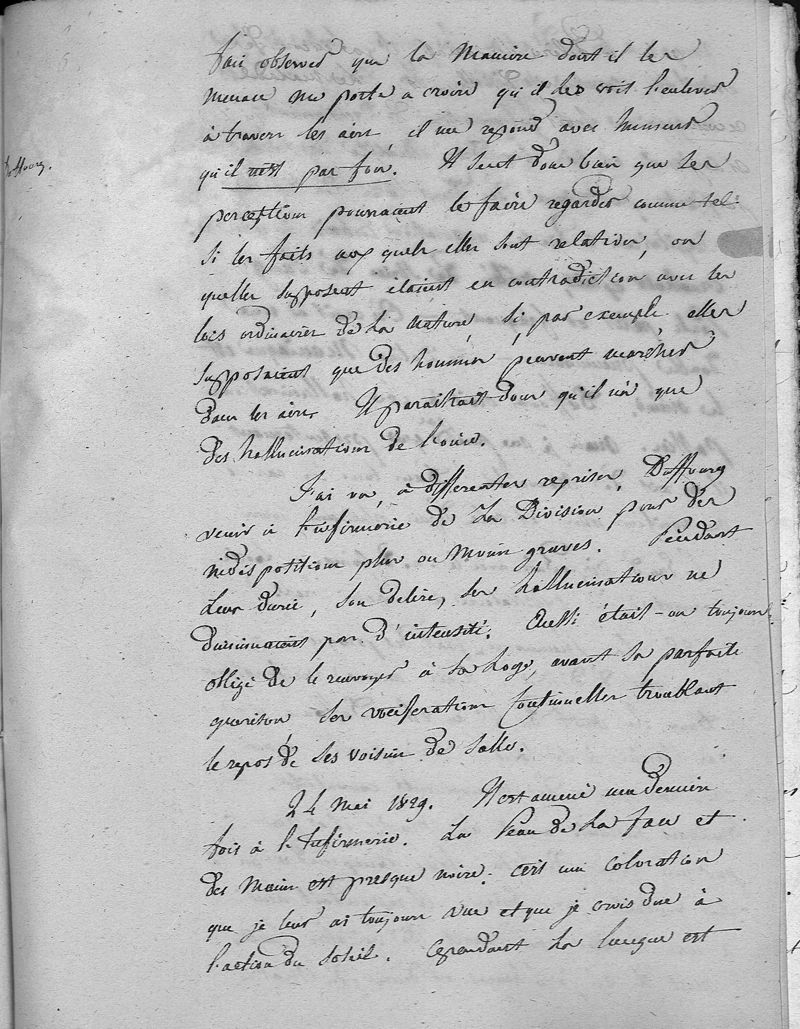 fais observer que la maniere dont il les
menace me porte a croire qu'il les voit s'enlever
à travers les airs il me repond avec humeur
qu'il n'est pas fou. Il sent donc bien que ses
Duffourg.
perceptions pourraient le faire regarder comme tel
si les faits aux quels elles sont relatives, ou
quelles supposent étaient en contradiction avec les
lois ordinaires de la nature si par exemple elles
supposaient que des hommes peuvent marcher
dans les airs. Il paraitrait donc qu'il n'a que
des hallucinations de l'ouie.
J'ai vu, à differentes reprises, Duffourg
venir à l'infirmerie de la Division pour des
indispositions plus ou moins graves. Pendant
leur durée, son delire, ses hallucinations ne
diminuaient pas d'intensité. Aussi était-on toujours
obligé de le renvoyer à sa loge, avant sa parfaite
guerison ses vociferations continuelles troublant
le repos de ses voisins de salle.
24 mai 1829. Il est amené une derniere
fois à l'Infirmerie. La Peau de la face et
des mains est presque noire. c'est une coloration
que je leur ai toujours vue et que je crois due à
l'action du soleil. Cependant la langue est